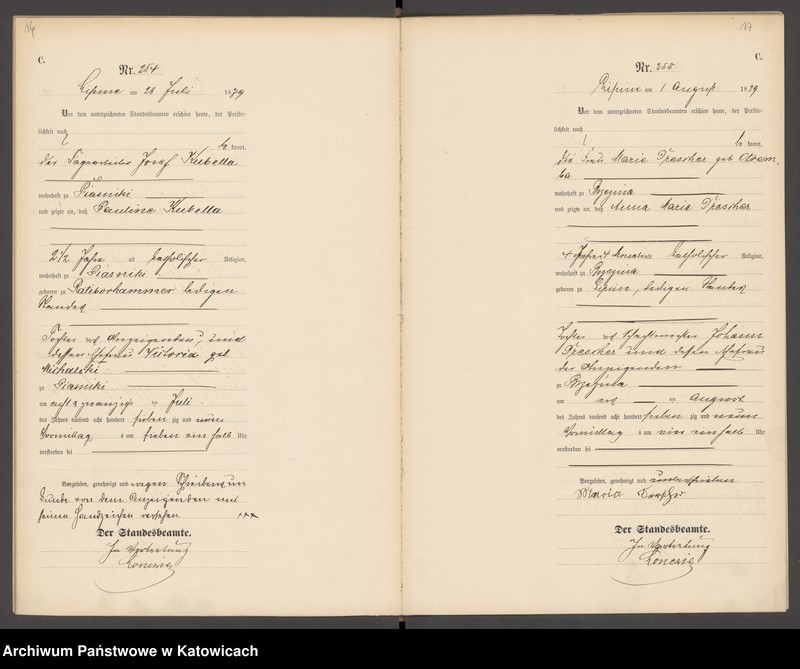 16
C.
Nr. 254
Lipine am 28 Juli 1879
Vor dem unterzeichneten Standesbeamten erschien heute, der Persön-
lichkeit nach
be kannt,
der Tagearbeiter Josef Kubella
wohnhaft zu Piasniki
und zeigte an, daß Pauline Kubella
2 1/2 Jahre alt katholischer Religion,
wohnhaft zu Piasniki
geboren zu Ratiborhammer ledigen
Standes
Tochter des Anzeigenden, und
dessen Ehefrau Victoria geb
Michalski
zu Piasniki
am acht zwanzig ten Juli
des Jahres tausend acht hundert sieben zig und neun
Vormittag s um sieben ein halb Uhr
verstorben sei
Vorgelesen, genehmigt und wegen Schreibensun
kunde von dem Anzeigenden mit
seinem Handzeichen versehen +++
Der Standesbeamte.
In Vertretung
17
C.
Nr. 255
Lipine am 1 August 1879
Vor dem unterzeichneten Standesbeamten erschien heute, der Persön-
lichkeit nach
be kannt,
die Frau Marie Drescher geb
wohnhaft zu
und zeigte an, daß Anna Marie Drescher
4 Jahre 4 Monate alt katholischer Religion,
wohnhaft zu
geboren zu Lipine, ledigen Standes
Tochter des Johann
Drescher und dessen Ehefrau
der Anzeigenden
zu
am ersten August
des Jahres tausend acht hundert sieben zig und neun
Vormittag s um vier ein halb Uhr
verstorben sei
Vorgelesen, genehmigt und unterschrieben
Maria
Der Standesbeamte.
In Vertretung
Archiwum Państwowe w Katowicach